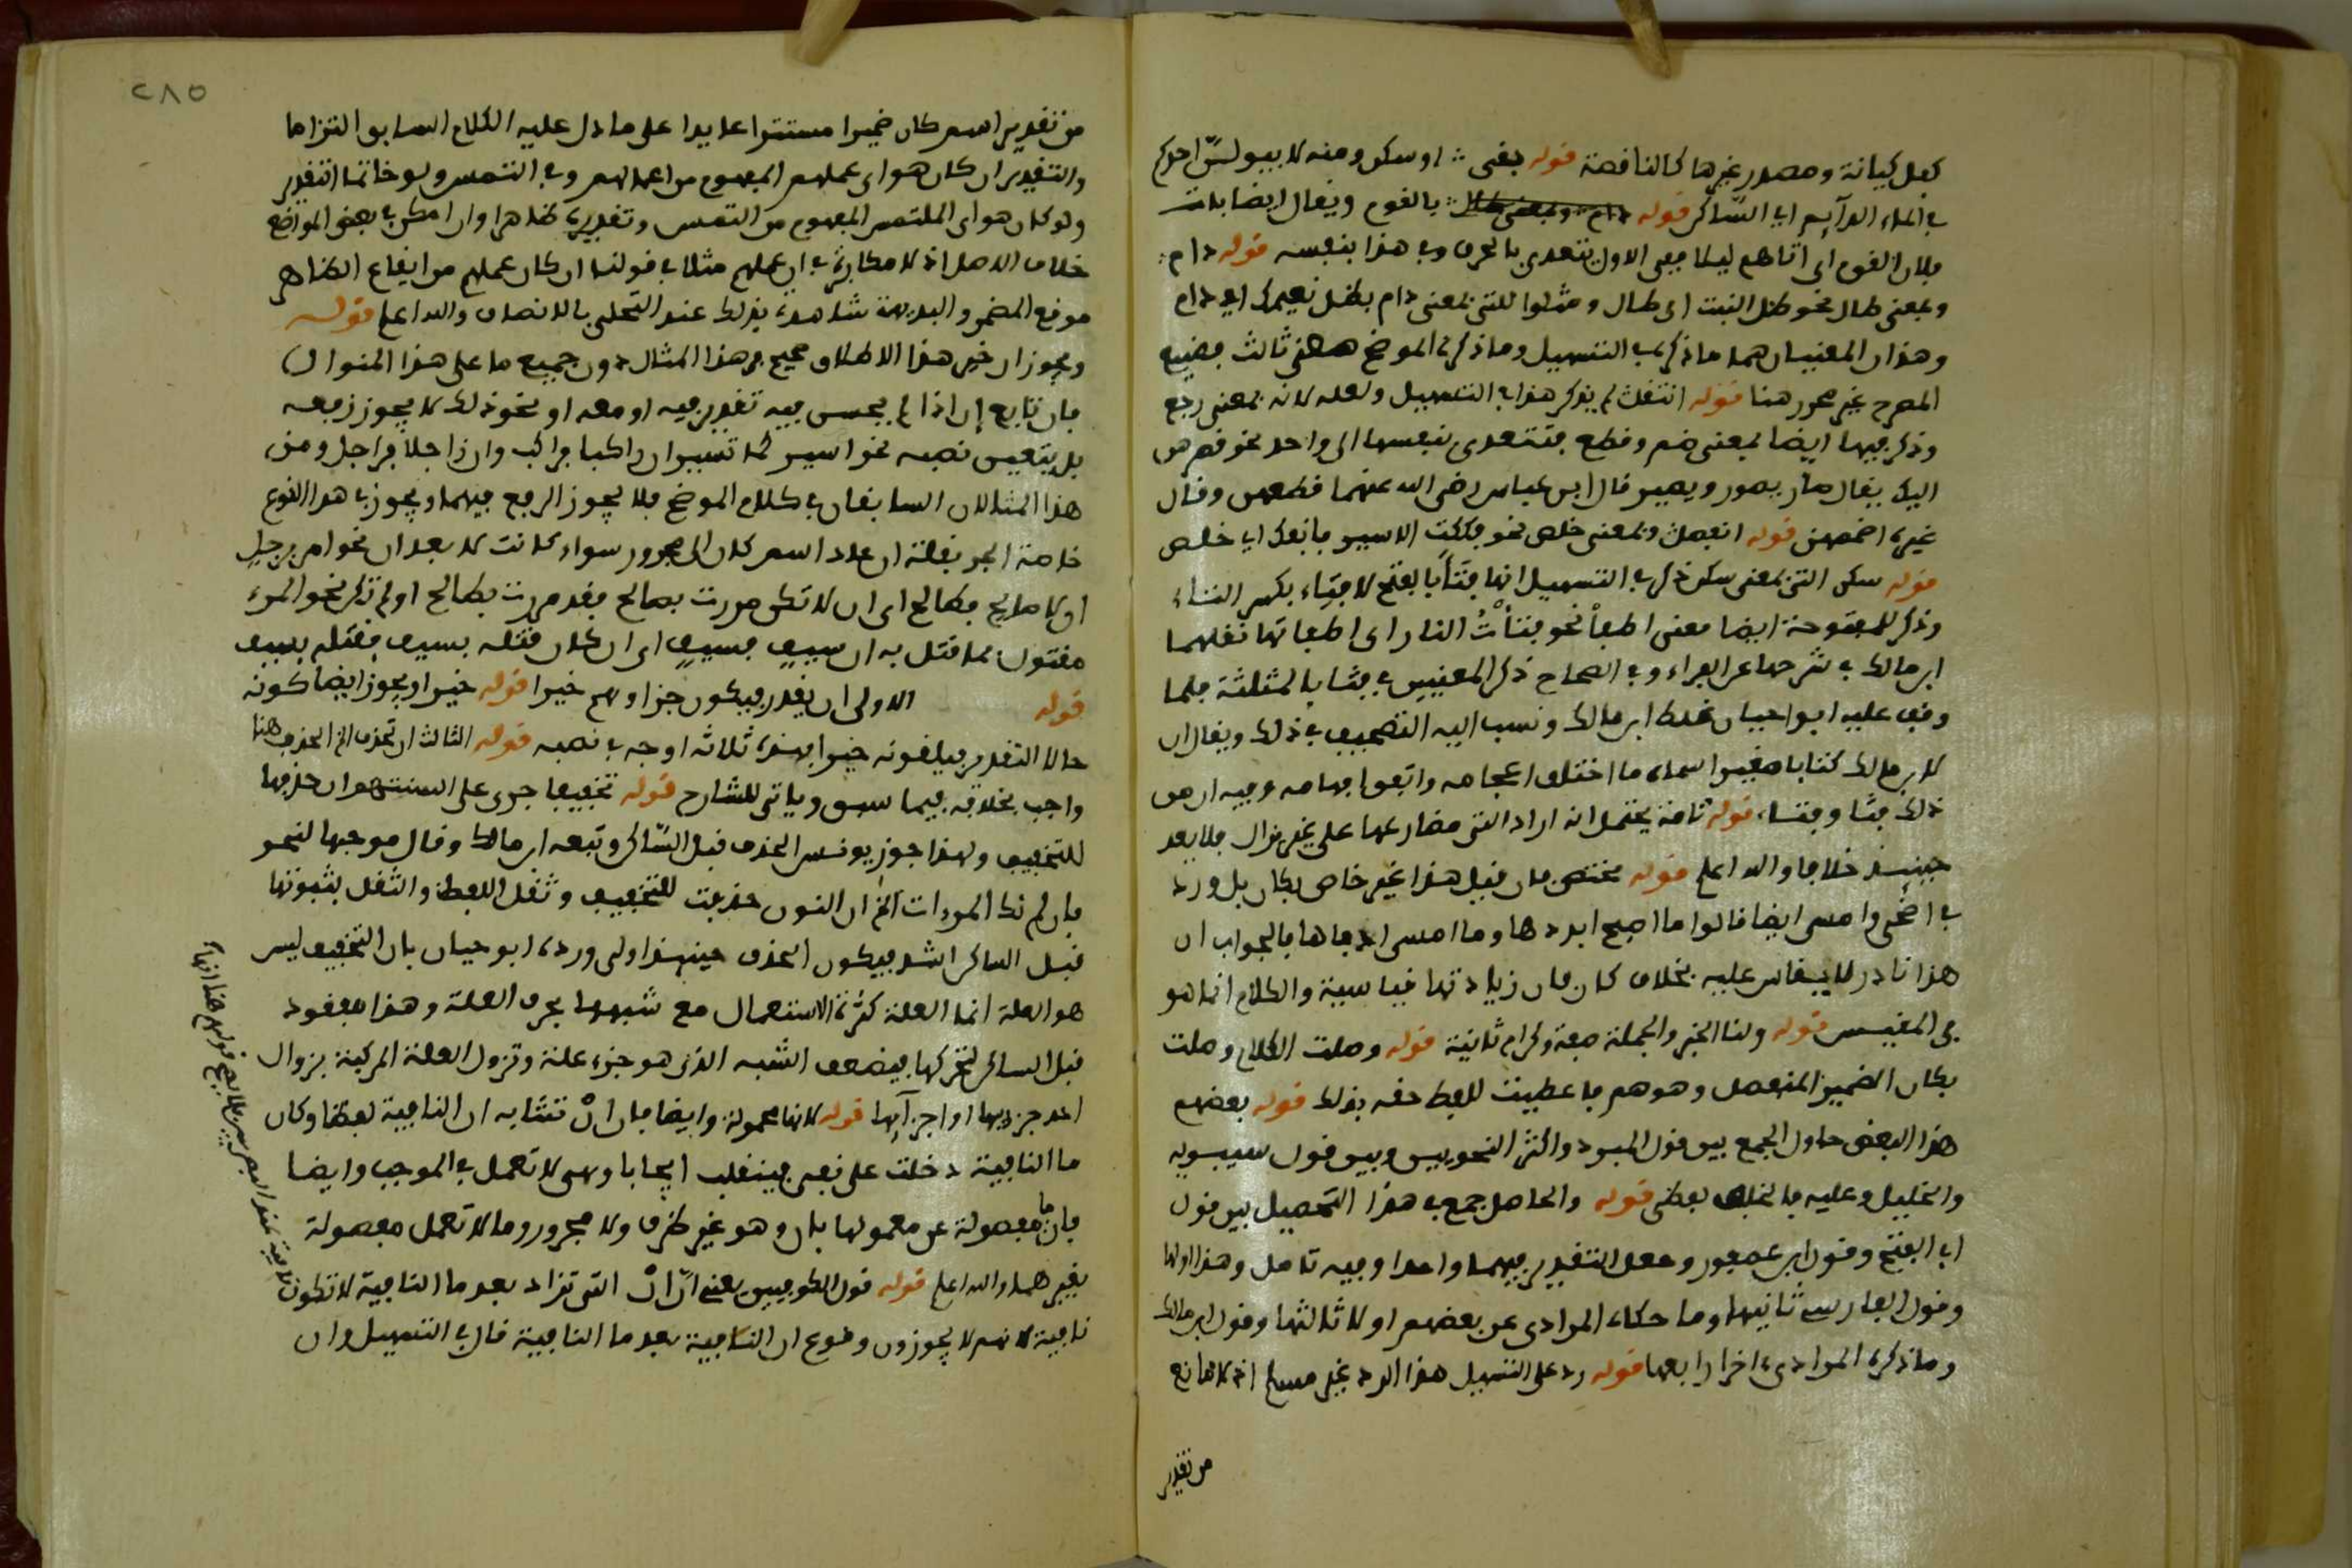 كفل كيانة ومصدر غيرها كالناقصة قوله بقى او سكن ومنه لا يبولنّ احدكم
في الماء الدآيم اي السّاكن قوله بالقوم ويقال ايضا بات
فلان القوم اي اتاهم ليلا ففي الاول يتعدى بالحرف وفي هذا بنفسه قوله دام
وبمعنى طال نحو ظل النبت اي طال ومثلوا للتي بمعنى دام بظل نعيمك اي دام
وهذان المعنيان هما ما ذكر في التسهيل وما ذكره الموضح معنى ثالث فصنيع
المصرح غير محرر هنا قوله انتقلت لم يذكر هذا في التسهيل ولعله لانه بمعنى رجع
وذكر فيها ايضا بمعنى ضم وقطع فتتعدى بنفسها الى واحد نحو فصرهن
اليك يقال صار يصور ويصير قال ابن عباس رضي الله عنهما قطعهن وقال
غيره اضممهن قوله انفصلت وبمعنى خلص نحو فككت الاسير فانفك اي خلص
قوله سكن التي بمعنى سكن ذكر في التسهيل انها فتأ بالفتح لا فتئ بكسر التاء
وذكر للمفتوحة ايضا معنى اطفأ نحو فتأت النار اي اطفاتها نقلهما
ابن مالك في شرحها عن الفراء وفي الصحاح ذكر المعنيين في فثا بالمثلثة فلما
وقف عليه ابو حيان غلط ابن مالك ونسب اليه التصحيف في ذلك ويقال ان
لابن مالك كتابا صغيرا سماه ما اختلف اعجامه واتفق افهامه وفيه ان من
ذلك فثا وفتا قوله تامة يحتمل انه اراد التي مضارعها على غير يزال فلا يعد
حينئذ خلافا والله اعلم قوله مختص فان قيل هذا غير خاص بكان بل ورد
في اضحى وامسى ايضا قالوا ما اصبح ابردها وما امسى ادفاها فالجواب ان
هذا نادر لا يقاس عليه بخلاف كان فان زيادتها قياسية والكلام انما هو
في المقيس قوله ولنا الخبر والجملة صفة وكرام ثانية قوله وصلت الكلام وصلت
بكان الضمير المنفصل وهو هم فاعطيت للفظ حقه بذلك قوله بعضهم
هذا البعض حاول الجمع بين قول المبرد واكثر النحويين وبين قول سيبويه
والخليل وعليه فالخلف لفظى قوله والحاصل جمع في هذا التحصيل بين قول
ابي الفتح وقول ابن عصفور وجعل التقدير فيهما واحدا وفيه تامل وهذا اولها
وقول الفارسي ثانيها وما حكاه المرادي عن بعضهم اولا ثالثها وقول ابن مالك
وما ذكره المرادي اخرا رابعها قوله رد على التسهيل هذا الرد غير مسلم اذ لا مانع
من تقدير
٢٨٥
من تقدير اسم كان ضميرا مستترا عايدا على ما دل عليه الكلام السابق التزاما
والتقدير ان كان هو اي عملهم المفهوم من اعمالهم وفي التمس ولو خاتما التقدير
ولو كان هو اي الملتمس المفهوم من التمس وتقديره ظاهرا وان امكن في بعض المواضع
خلاف الاصل اذ لا مكابرة في ان عملهم مثلا في قولنا ان كان عملهم من ايقاع الظاهر
موقع المضمر والبديهة شاهدة بذلك عند التحلي بالانصاف والله اعلم قوله
ويجوز ان خير هذا الاطلاق صحيح في هذا المثال دون جميع ما على هذا المنوال
فان تابع ان اذا لم يحسن فيه تقدير فيه او معه او نحو ذلك لا يجوز رفعه
بل يتعين نصبه نحو اسير كما تسير ان راكبا فراكب وان راجلا فراجل ومن
هذا المثالان السابقان في كلام الموضح فلا يجوز الرفع فيهما ويجوز في هذا النوع
خاصة الجر بقلة ان عاد اسم كان الى مجرور سواء كانت لا بعد ان نحو امر برجل
او لا صالح فطالح اي ان لا تكن مررت بصالح فقد مررت بطالح او لم تذكر نحو المرء
مقتول بما قتل به ان سيف فسيف اي ان كان قتله بسيف فقتله بسيف
قوله الاولى ان يقدر فيكون جزاوهم خيرا قوله خيرا ويجوز ايضا كونه
حالا التقدير فيلقونه خيرا فهذه ثلاثة اوجه في نصبه قوله الثالث ان تحذف الخ الحذف هنا
واجب بخلافه فيما سبق وياتي للشارح قوله تخفيفا جرى على السنتهم ان حذفها
للتخفيف ولهذا جوز يونس الحذف قبل السّاكن وتبعه ابن مالك وقال موجبها لنحو
فان لم تك المرءات الخ ان النون حذفت للتخفيف وثقل اللفظ والثقل بثبوتها
قبل الساكن اشد فيكون الحذف حينئذ اولى ورده ابو حيان بان التخفيف ليس
هو العلة انما العلة كثرة الاستعمال مع شبهها بحرف العلة وهذا مفقود
قبل الساكن لتحركها فيضعف الشبه الذي هو جزء علة وتزول العلة المركبة بزوال
احد جزءيها او اجزآيها قوله لانها محمولة وايضا فان انْ تشابه ان النافية لفظا وكان
ما النافية دخلت على نفى فينقلب ايجابا وهى لا تعمل في الموجب وايضا
فان ما مفصولة عن معمولها بان وهو غير ظرف ولا مجرور وما لا تعمل مفصولة
بغيرهما والله اعلم قوله قول الكوفيين يعني انّ انْ التي تزاد بعد ما النافية لا تكون
نافية لانهم لا يجوزون وقوع ان النافية بعد ما النافية قال في التسهيل وان
نافية عند البصريين فلا يصح قولهم هنا انها